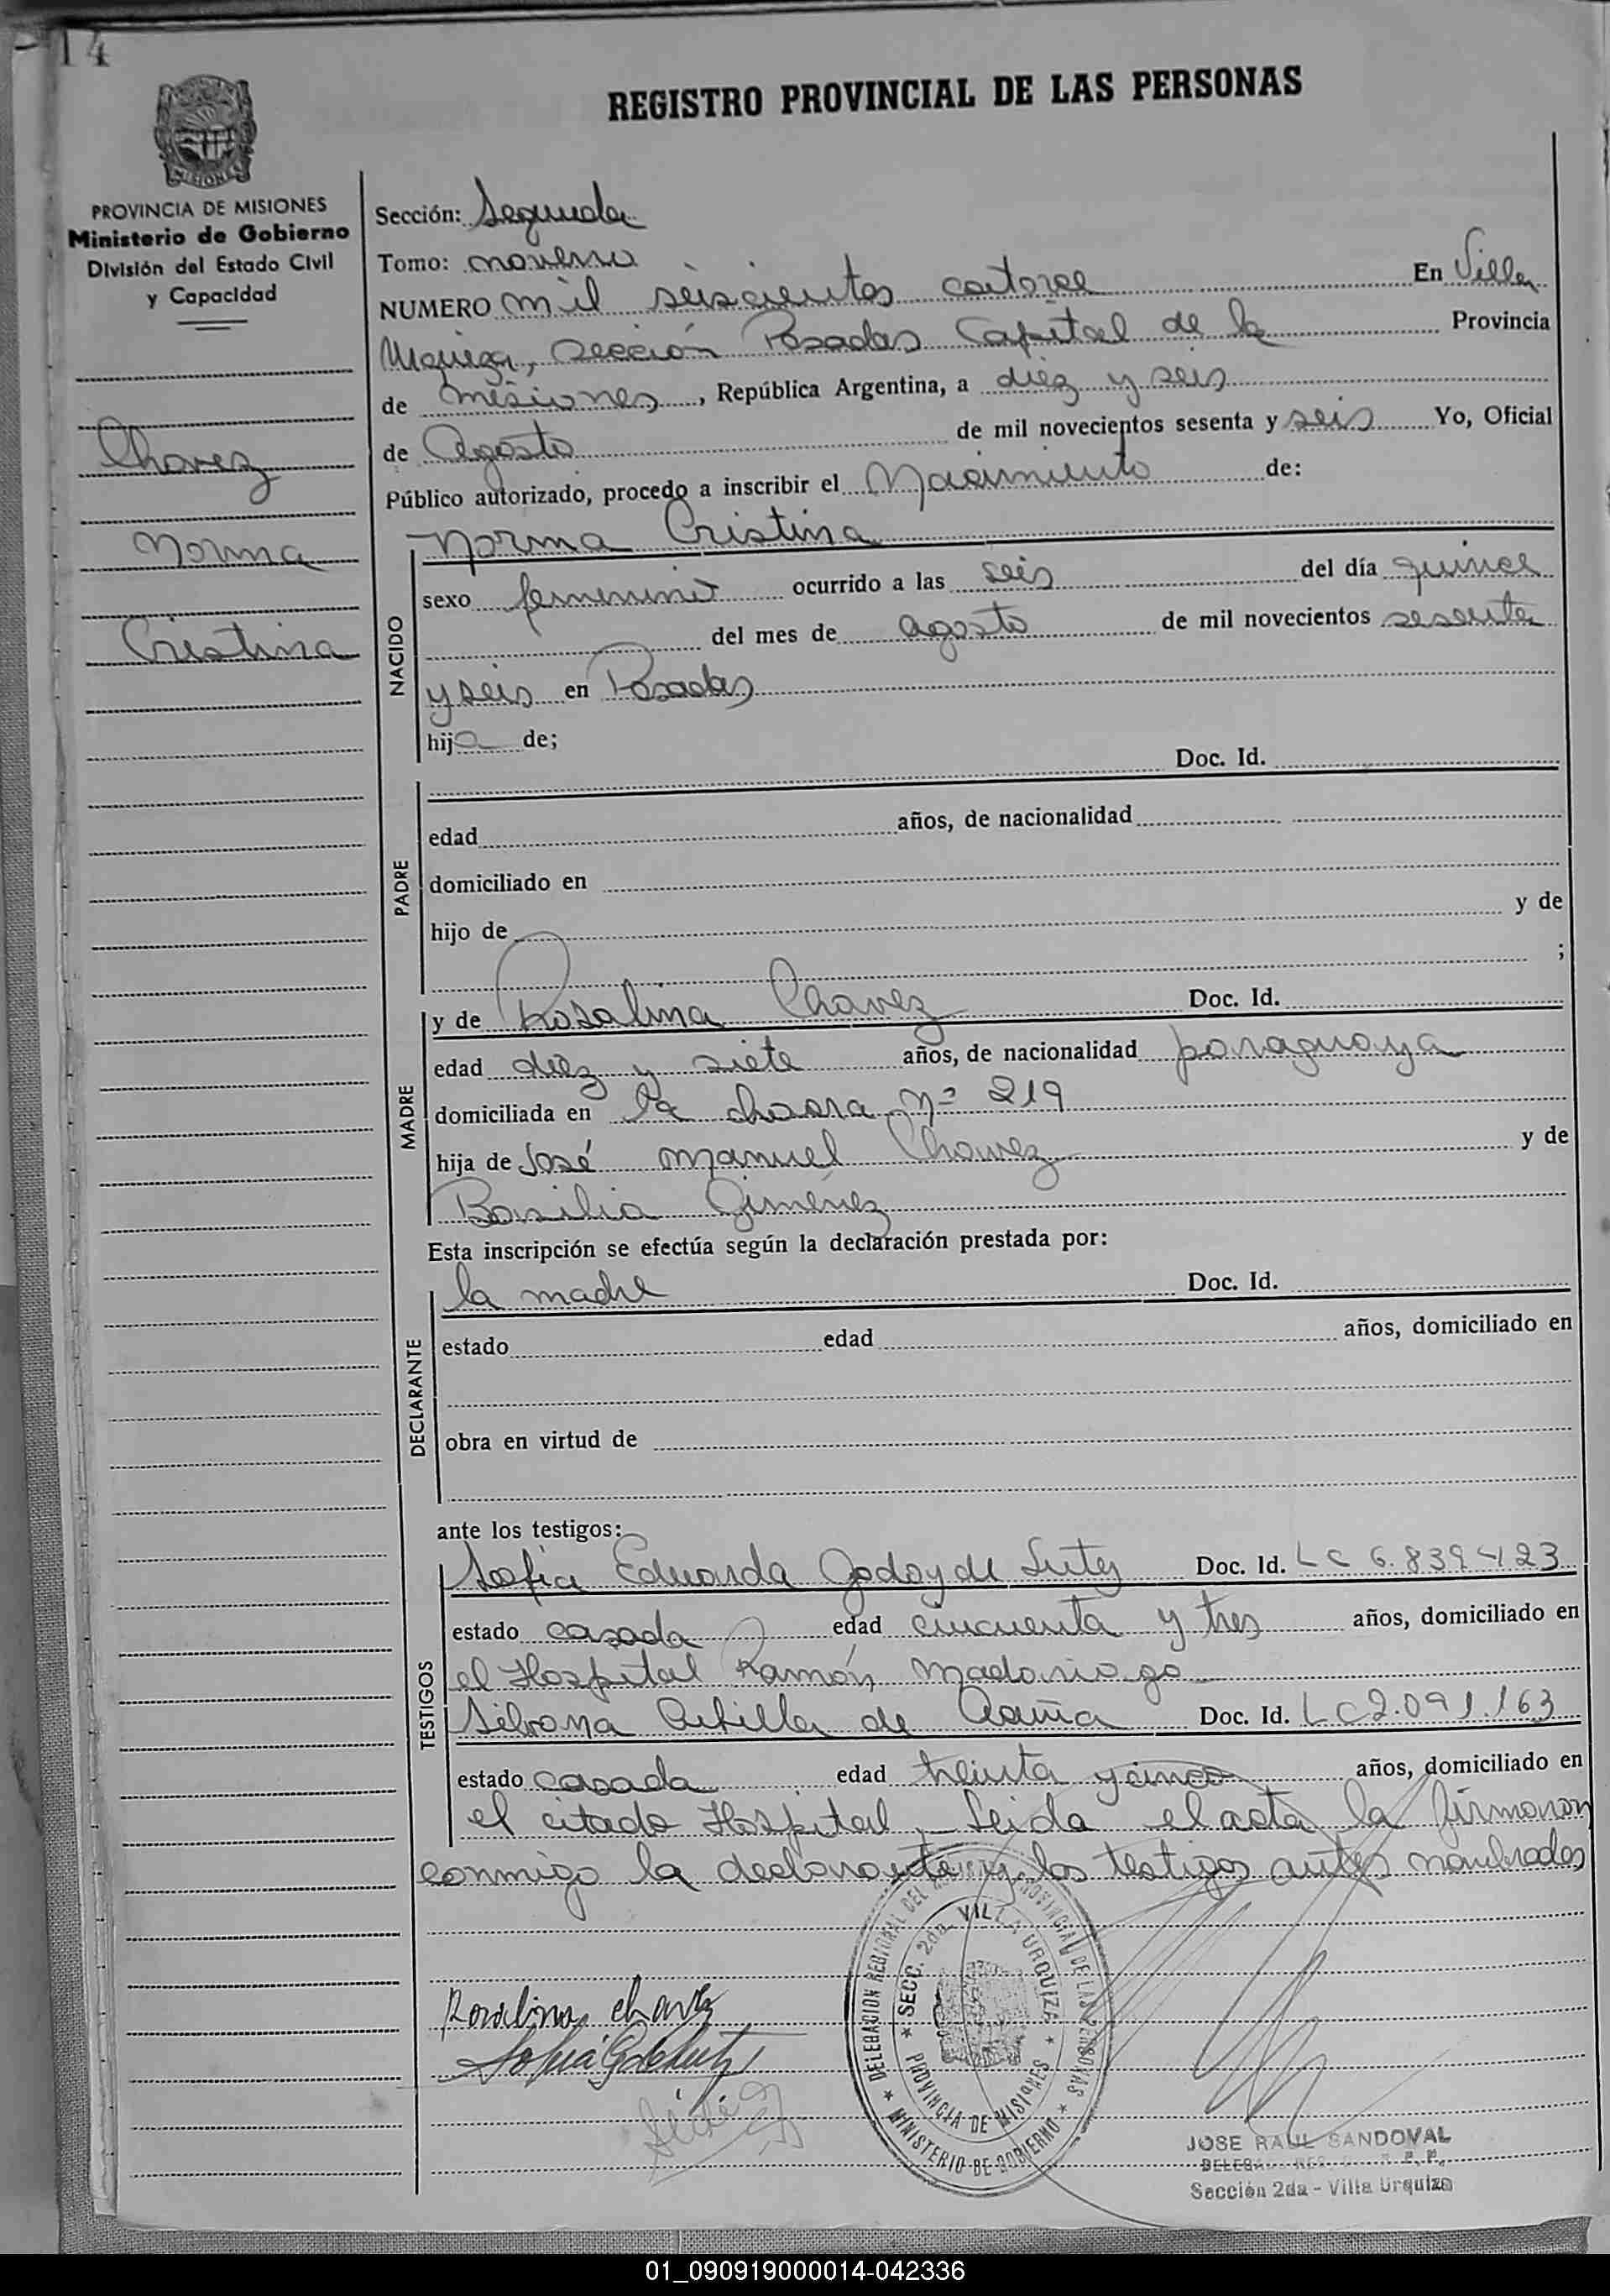 14
REGISTRO PROVINCIAL DE LAS PERSONAS
MISIONES
PROVINCIA DE MISIONES
Ministerio de Gobierno
División del Estado Civil
y Capacidad
Chavez
Norma
Cristina
Sección: Segunda
Tomo: noveno
NUMERO mil seiscientos catorce En Villa
Urquiza, Sección Posadas Capital de la Provincia
de Misiones, República Argentina, a diez y seis
de Agosto de mil novecientos sesenta y seis Yo, Oficial
Público autorizado, procedo a inscribir el Nacimiento de:
NACIDO
Norma Cristina
sexo femenino ocurrido a las seis del día quince
del mes de agosto de mil novecientos sesenta
y seis en Posadas
hija de;
PADRE
Doc. Id.
edad años, de nacionalidad
domiciliado en
hijo de y de
;
MADRE
y de Rosalina Chavez Doc. Id.
edad diez y siete años, de nacionalidad paraguaya
domiciliada en la chacra Nº 219
hija de José Manuel Chavez y de
Basilia Giménez
Esta inscripción se efectúa según la declaración prestada por:
DECLARANTE
la madre Doc. Id.
estado edad años, domiciliado en
obra en virtud de
ante los testigos:
TESTIGOS
Sofia Eduarda Godoy de Doc. Id. LC 6.839.423
estado casada edad cincuenta y tres años, domiciliado en
el Hospital Ramón Madariaga
Silvana de Acuña Doc. Id. LC 2.091.163
estado casada edad treinta y cinco años, domiciliado en
el citado Hospital, Leida el acta la firmaron
conmigo la declarante y los testigos antes nombrados
Rosalina chavez
DELEGACION REGIONAL DEL REGISTRO PROVINCIAL DE LAS PERSONAS
SECC. 2da. VILLA URQUIZA
PROVINCIA DE MISIONES
MINISTERIO DE GOBIERNO
JOSE RAUL SANDOVAL
Sección 2da - Villa Urquiza
01_090919000014-042336